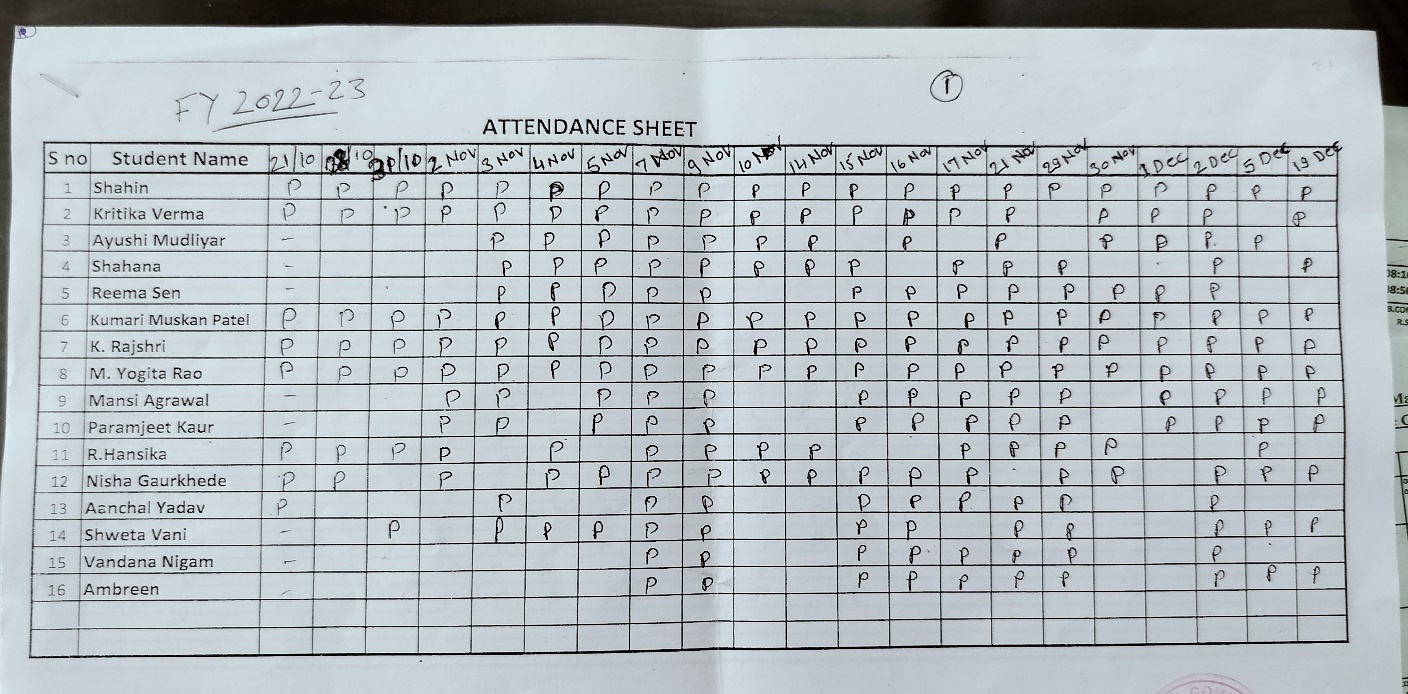 FY 2022-23
1
ATTENDANCE SHEET
S no Student Name 21/10 28/10 31/10 2 Nov 3 Nov 4 Nov 5 Nov 7 Nov 9 Nov 10 Nov 14 Nov 15 Nov 16 Nov 17 Nov 21 Nov 29 Nov 30 Nov 1 Dec 2 Dec 5 Dec 19 Dec
1 Shahin P P P P P P P P P P P P P P P P P P P P P
2 Kritika Verma P P P P P P P P P P P P P P P P P P P
3 Ayushi Mudliyar - P P P P P P P P P P P P P
4 Shahana - P P P P P P P P P P P P P
5 Reema Sen - P P P P P P P P P P P P P
6 Kumari Muskan Patel P P P P P P P P P P P P P P P P P P P P P
7 K. Rajshri P P P P P P P P P P P P P P P P P P P P P
8 M. Yogita Rao P P P P P P P P P P P P P P P P P P P P P
9 Mansi Agrawal - P P P P P P P P P P P P P P
10 Paramjeet Kaur - P P P P P P P P P P P P P P
11 R.Hansika P P P P P P P P P P P P P P
12 Nisha Gaurkhede P P P P P P P P P P P P P P P P P
13 Aanchal Yadav P P P P P P P P P P
14 Shweta Vani - P P P P P P P P P P P P P
15 Vandana Nigam - P P P P P P P P
16 Ambreen - P P P P P P P P P P